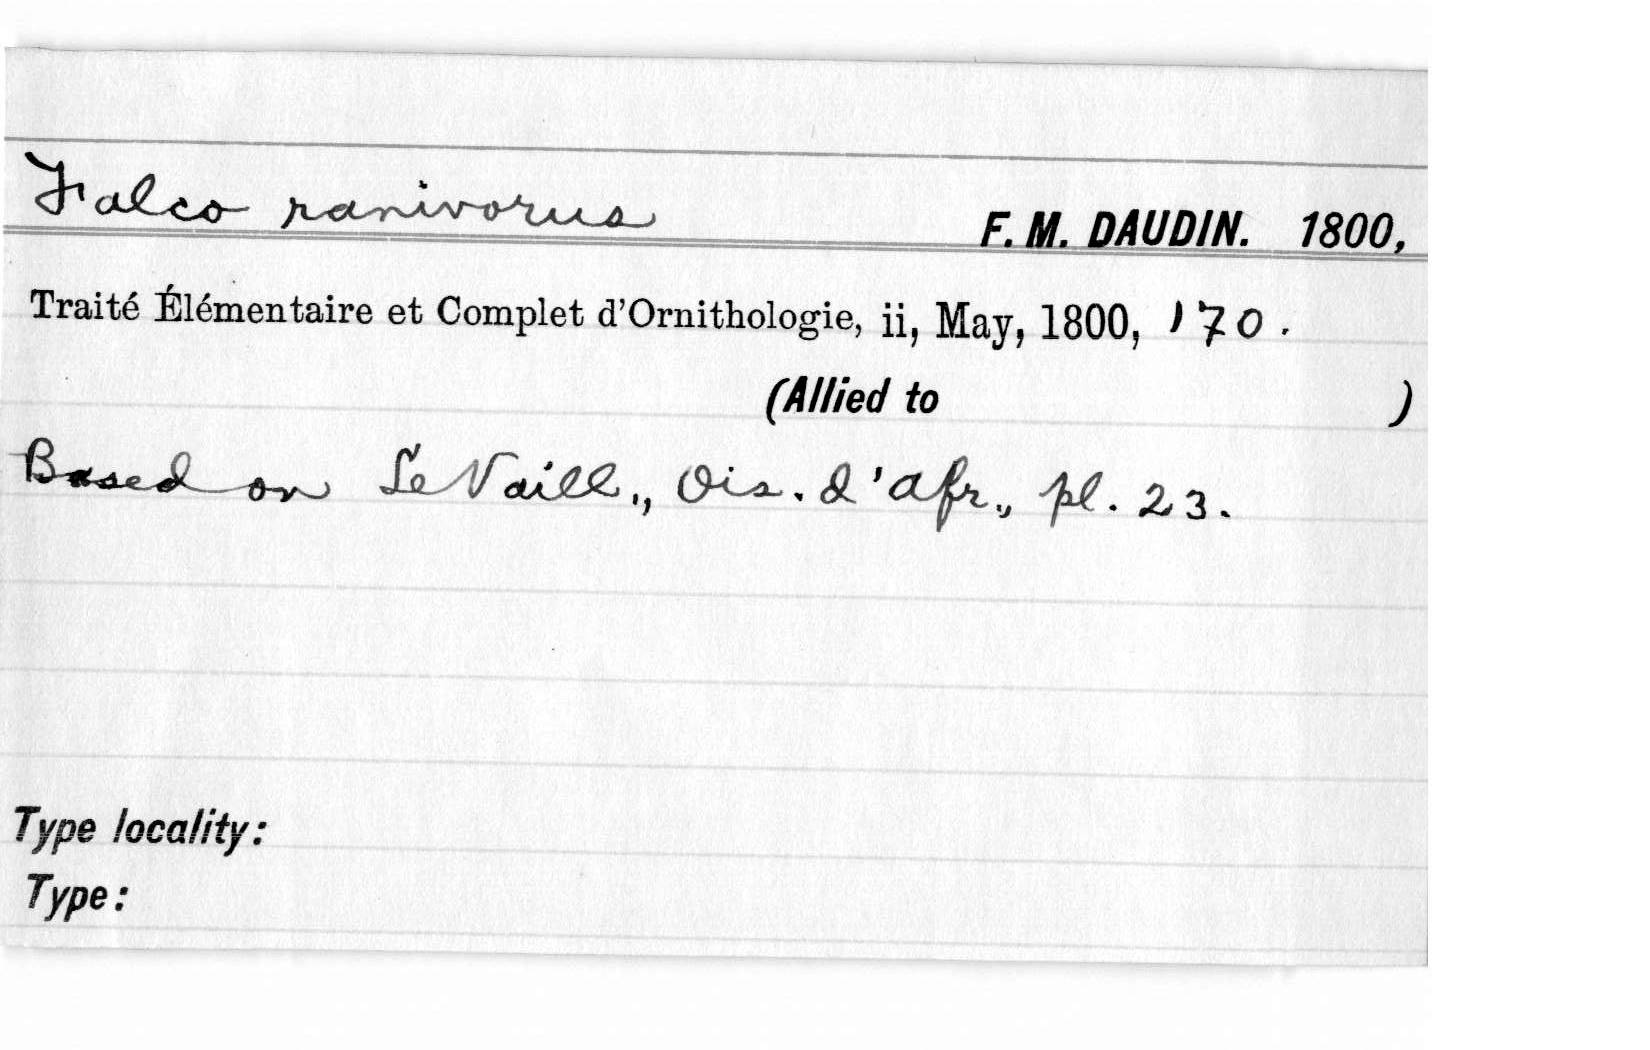 Falco ranivorus F. M. DAUDIN. 1800,
Traité Élémentaire et Complet d'Ornithologie, ii, May, 1800, 170.
(Allied to )
Based on Le Vaill., Ois. d'Afr., pl. 23.
Type locality:
Type: